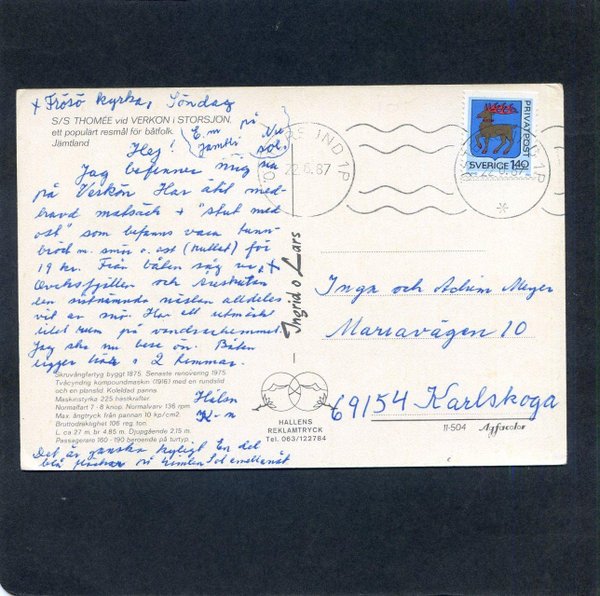 + Frösö kyrka, Söndag
S/S THOMÉE vid VERKÖN i STORSJÖN,
ett populärt resmål för båtfolk.
Jämtland
E.m på
Jamtli
Nu
sol.
Hej!
Jag befinner mig nu
på Verkön. Har ätit med-
havd matsäck + "slut med
ost" som befanns vara tunn-
bröd m. smör o. ost (rullat) för
19 kr. Från båten såg vi
Oviksfjällen och Åreskutan
den sistnämnda nästan alldeles
vit av snö. Har ett utmärkt
litet rum på vandrarhemmet.
Jag ska nu bese ön. Båten
ligger här i 2 timmar.
Skruvångfartyg byggt 1875. Senaste renovering 1975
Tvåcyndrig kompoundmaskin (1916) med en rundslid
och en planslid. Koleldad panna.
Maskinstyrka 225 hästkrafter
Normalfart 7-8 knop. Normalvarv 136 rpm.
Max. ångtryck från pannan 10 kp/cm2
Bruttodräktighet 106 reg. ton
L. ca 27 m. br 4.85 m. Djupgående 2,15 m.
Passagerare 160-190 beroende på turtyp
Hälsn
K-m
Det är ganska kyligt En del
blå fläckar på himlen Sol emellanåt
Ingrid o Lars
HALLENS
REKLAMTRYCK
Tel. 063/122784
IND 1P
22.6.87
PRIVATPOST
SVERIGE 140
IND 1P
22.6.87
Inga och Achim Meyer
Mariavägen 10
69154 Karlskoga
11-504 Agfacolor